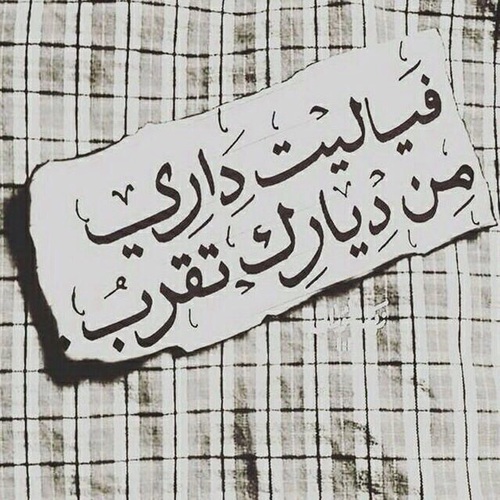 فَياليت دَارِي
مِن دِيارِك تقربُ